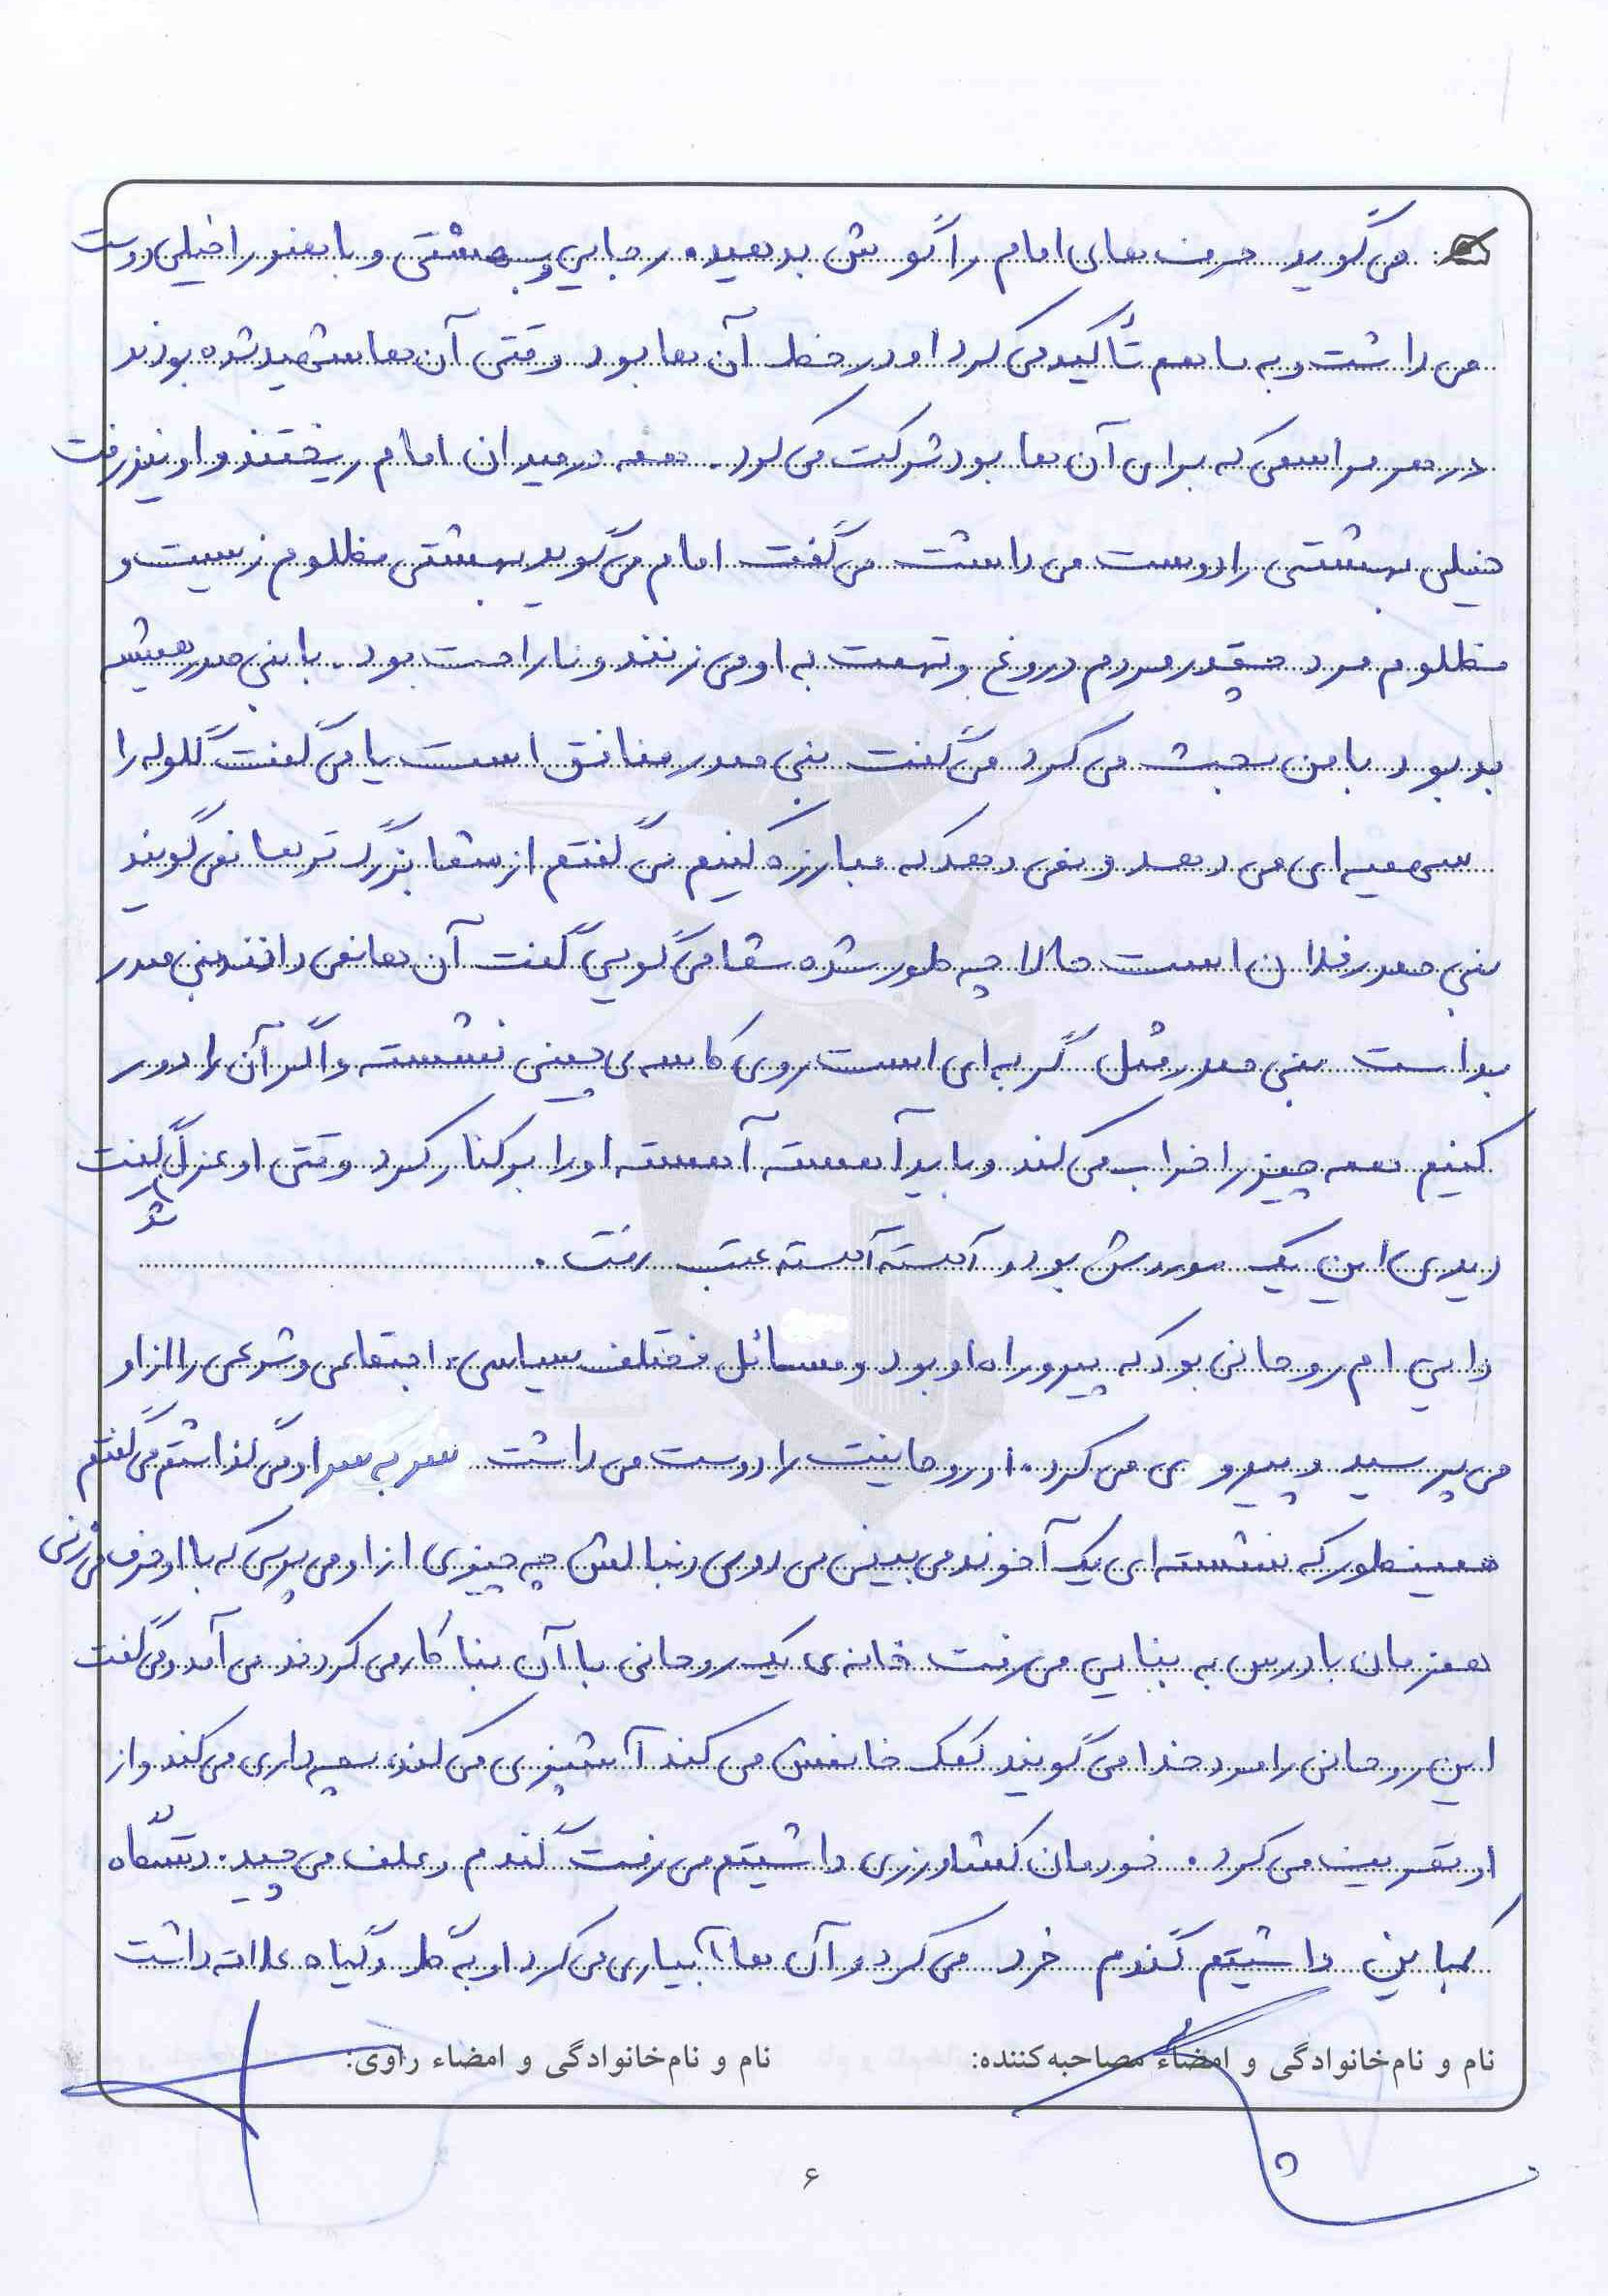 می‌گوید حرف های امام را گوش بدهید. رجایی و بهشتی و باهنر را خیلی دوست
می داشت و به ما هم تأکید می کرد او در خط آن ها بود وقتی آن ها شهید شده بودند
در هر مراسمی که برای آن ها بود شرکت می کرد. همه در میدان امام ریختند و او نیز رفت
خیلی بهشتی را دوست می داشت می گفت امام می گوید بهشتی مظلوم زیست و
مظلوم مرد چقدر مردم دروغ و تهمت به او می زنند و ناراحت بود. با بنی صدر همیشه
بد بود با من بحث می کرد می گفت بنی صدر منافق است یا می گفت گلوله را
سهمیه ای می دهد و نمی دهد که مبارزه کنیم می گفتم از شما بزرگ تر ها نمی گویند
بنی صدر فلان است حالا چه طور شده شما می گویی گفت آن ها نمی دانند بنی صدر
بد است بنی صدر مثل گربه ای است روی کاسه ی چینی نشسته و اگر آن را دور
کنیم همه چیز را خراب می کند و باید آهسته آهسته او را برکنار کرد وقتی او عزل شد گفت
دیدی این یک موردش بود و آهسته آهسته عقب رفت.
دایی ام روحانی بود که پیرو راه او بود و مسائل مختلف سیاسی، اجتماعی و شرعی را از او
می پرسید و پیروی می کرد. او روحانیت را دوست می داشت سر به سر او می گذاشتم می گفتم
همینطور که نشسته ای یک آخوند می بینی می روی دنبالش چه چیزی از او می پرسی که با او حرف می زنی
همزمان با درس به بنایی می رفت خانه ی یک روحانی با آن بنا کار می کردند می آمد و می گفت
این روحانی را مرد خدا می گویند کمک خانمش می کند آشپزی می کند، بچه داری می کند و از
او تعریف می کرد. خودمان کشاورزی داشتیم می رفت گندم و علف می چید. دستگاه
کمباین داشتیم گندم خرد می کرد و آن ها آبیاری می کرد او به گل و گیاه علاقه داشت
نام و نام‌خانوادگی و امضاء مصاحبه‌کننده: نام و نام‌خانوادگی و امضاء راوی:
۶